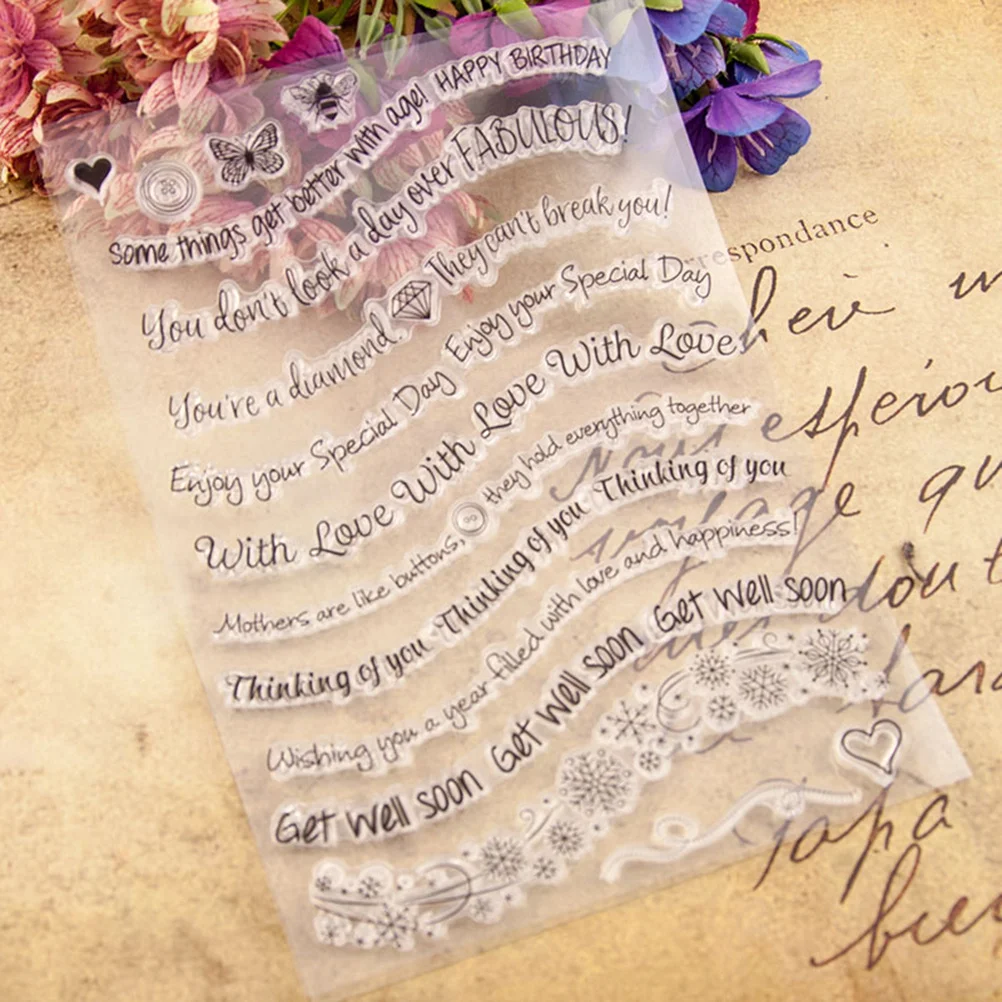 Some things get better with age! HAPPY BIRTHDAY
You don't look a day over FABULOUS!
You're a diamond! They can't break you!
Enjoy your Special Day Enjoy your Special Day
With Love With Love With Love
Mothers are like buttons, they hold everything together
Thinking of you Thinking of you Thinking of you
Wishing you a year filled with love and happiness!
Get Well Soon Get Well Soon Get Well Soon
respondance